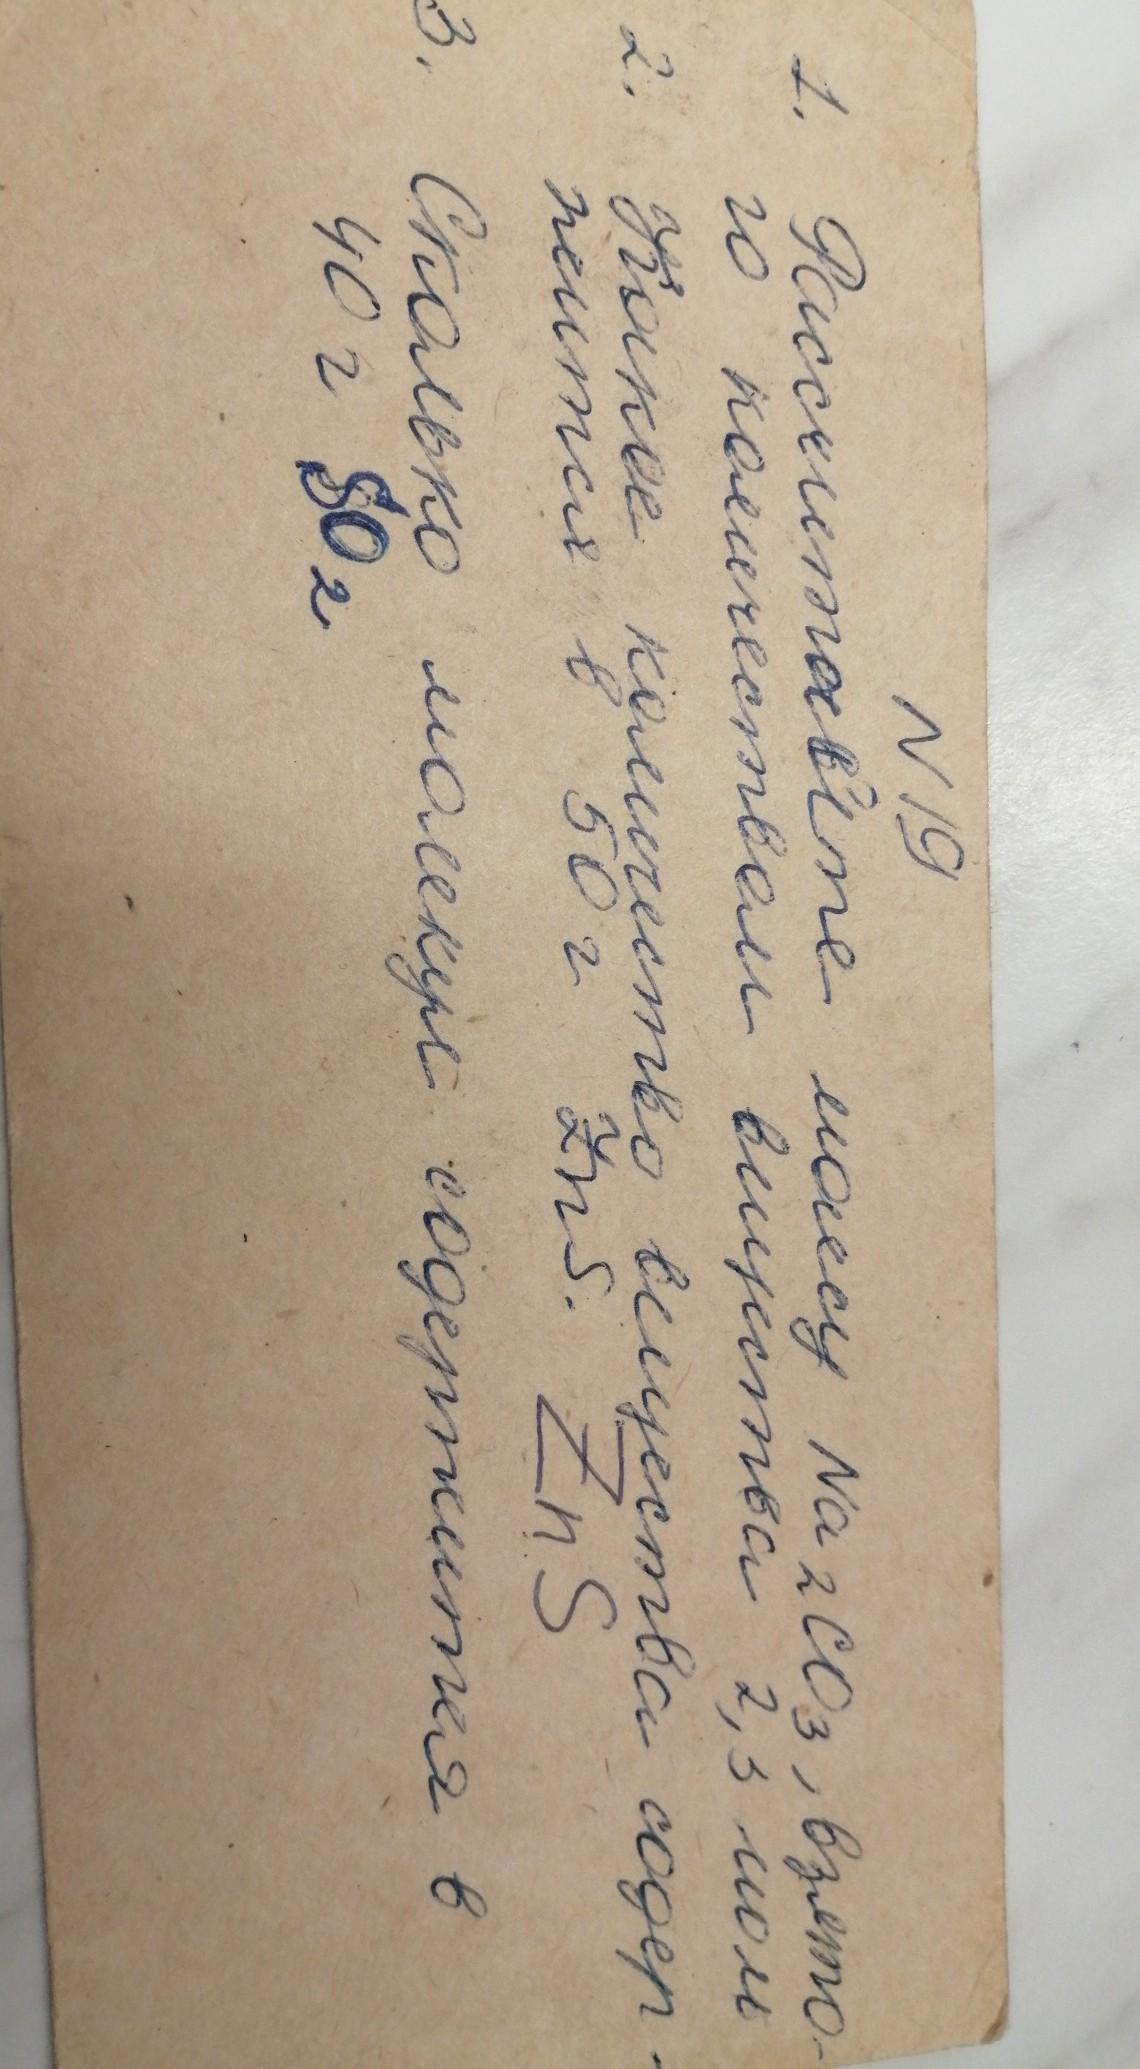 N 19
1. Рассчитайте массу Na2CO3, взято-
го количеством вещества 2,3 моль
2. Какое количество вещества содер-
жится в 50 г ZnS. ZnS
3. Сколько молекул содержится в
40 г SO2.